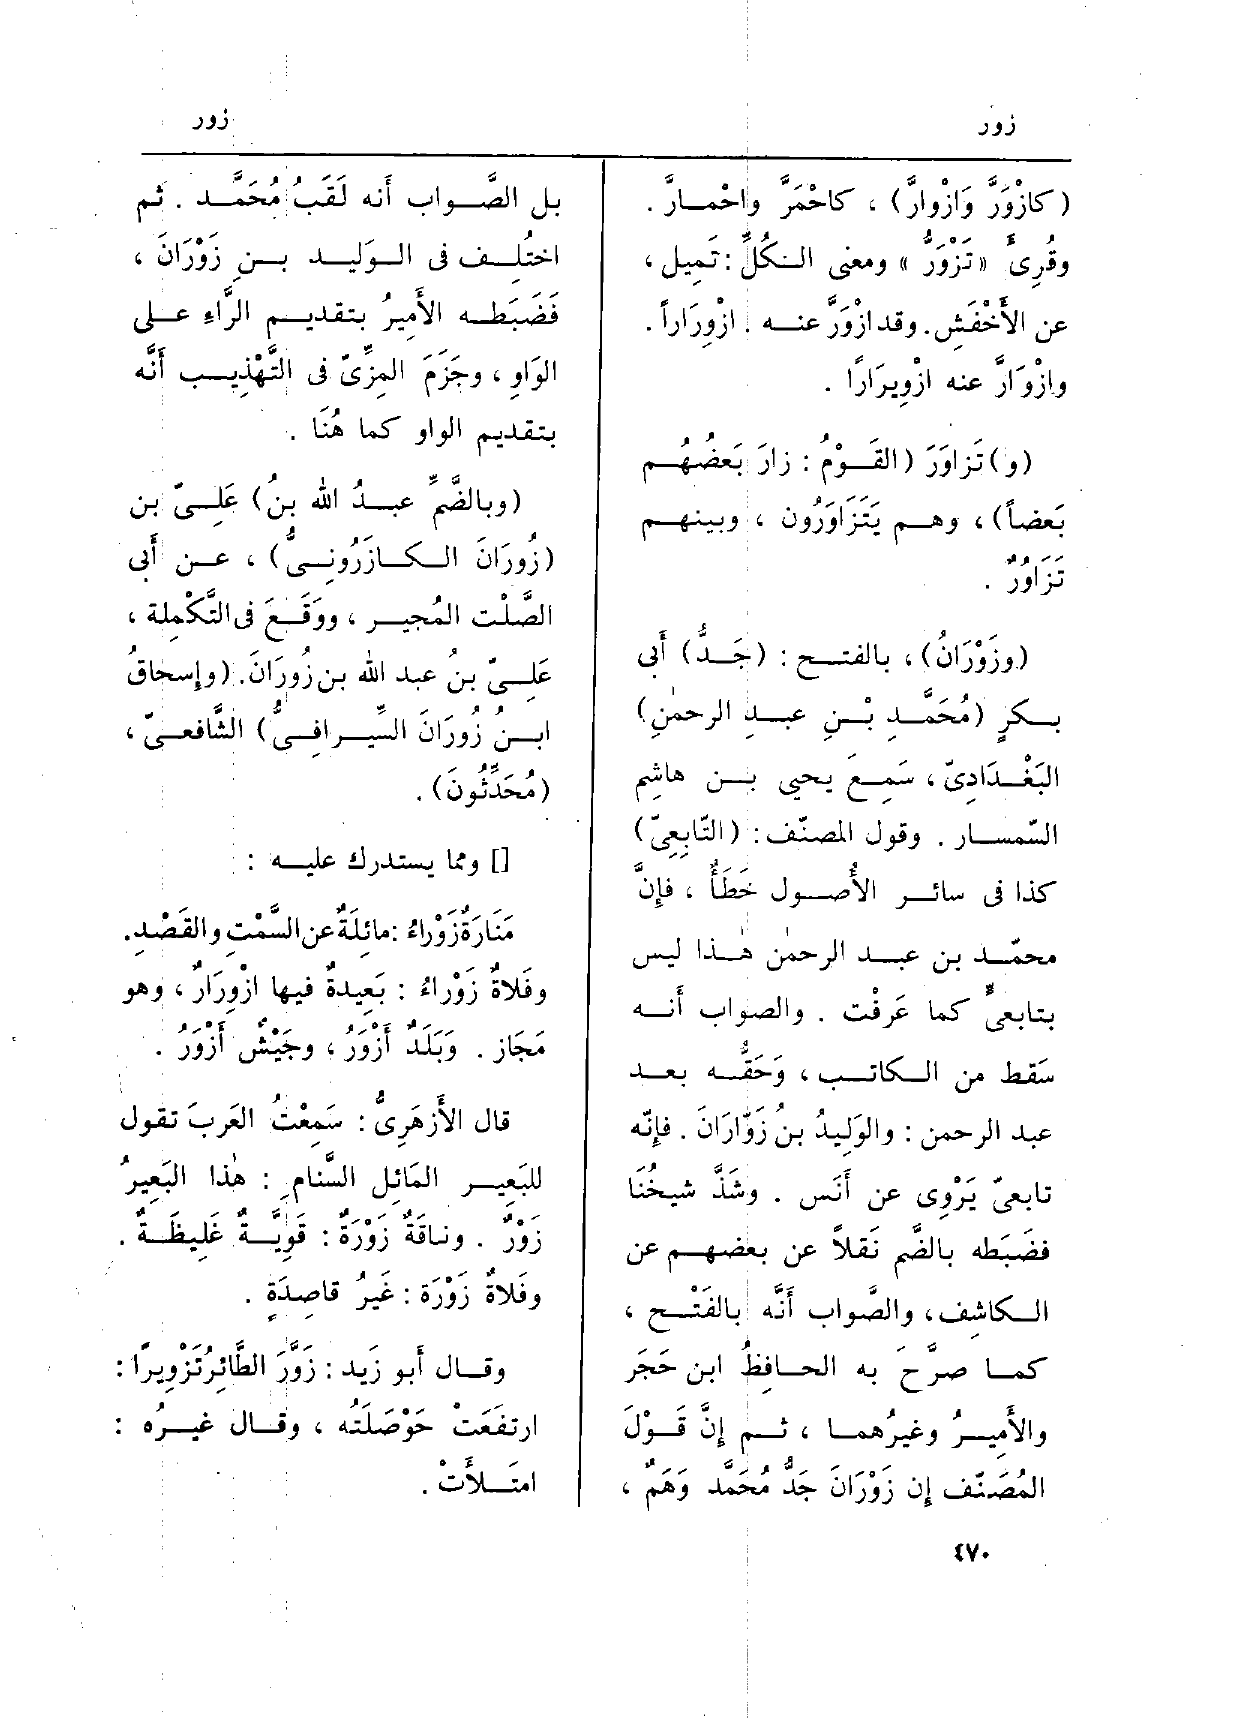 زور
زور
(كازْوَرَّ وَازْوارَّ) ، كاحْمَرَّ واحْمـارَّ .
وقُرِىءَ «تَزْوَرُّ» ومعنى الـكُلِّ : تَميل ،
عن الأَخْفَش . وقد ازْوَرَّ عنـه . ازْوِرَاراً .
وازْوَارَّ عنه ازْوِيرَارًا .
(و) تَزاوَرَ (القَـوْمُ : زارَ بَعضُهـم
بَعضاً) ، وهـم يَتَزَاوَرُون ، وبينهـم
تَزَاوُرٌ .
(وزَوْرَانُ) ، بالفتـح : (جَـدُّ) أَبى
بـكرٍ (مُحَمَّـدِ بْـنِ عبـدِ الرحمٰنِ)
البَغْـدَادِىّ ، سَمِـعَ يحيى بـن هاشِم
السِّمسـار . وقول المصنّف : (التّابِعِىّ)
كذا فى سائـر الأُصـول خَطَأٌ ، فإِنَّ
محمّـد بن عبـد الرحمٰن هـذا ليس
بتابعىٍّ كما عَرَفْت . والصواب أَنـه
سَقط من الـكاتـب ، وَحَقُّـه بعـد
عبد الرحمن : والوَلِيدُ بنُ زَوْارَانَ . فإِنّه
تابعىّ يَرْوِى عن أَنَس . وشَذَّ شيخُنَا
فضَبَطه بالضَّم نَقلاً عن بعضهـم عن
الـكاشِف ، والصَّواب أَنَّه بالفَتْـح ،
كمـا صرَّح به الحـافِظُ ابن حَجَر
والأَميـرُ وغيرُهمـا ، ثـم إِنَّ قَـوْلَ
المُصَنّف إِن زَوْرَانَ جَدُّ مُحَمَّد وَهَمٌ ،
بل الصَّـواب أَنه لَقَبُ مُحَمَّـد . ثم
اختُلِـف فى الـوَلِيـد بـنِ زَوْرَانَ ،
فَضَبَطـه الأَميرُ بتقديـم الرَّاءِ عـلى
الوَاوِ ، وجَزَمَ المِزِّىّ فى التَّهْذِيـب أَنَّه
بتقديم الواو كما هُنَا .
(وبالضَّمِّ عبـدُ الله بنُ) عَلِـىّ بن
(زُورَانَ الـكـازَرُونـىُّ) ، عـن أَبى
الصَّلْت المُجبـر ، ووَقَـعَ فى التَّكْمِلة ،
عَلِـىّ بنُ عبد الله بن زُورَانَ . (وإِسحاقُ
ابـنُ زُورَانَ السِّيـرافـىُّ) الشَّافعـىّ ،
(مُحَدِّثُونَ) .
[] ومما يستدرك عليـه :
مَنَارَةٌ زَوْرَاءُ : مائِلَةٌ عن السَّمْتِ والقَصْدِ .
وفَلاةٌ زَوْراءُ : بَعِيدةٌ فيها ازْوِرَارٌ ، وهو
مَجَاز . وَبَلَدٌ أَزْوَرُ ، وجَيْشٌ أَزْوَرُ .
قال الأَزهَرِىُّ : سَمِعْتُ العَربَ تقول
للبَعِيـر المَائل السَّنام : هٰذا البَعيرُ
زَوْرٌ . وناقَةٌ زَوْرَةٌ : قَوِيَّـةٌ غَلِيظَـةٌ .
وفَلاةٌ زَوْرَة : غَيرُ قاصِدَةٍ .
وقـال أَبو زَيد : زَوَّرَ الطَّائِرُ تَزْوِيرًا :
ارتفَعَتْ حَوْصَلَتُه ، وقـال غيـرُه :
امتَـلأَتْ .
٤٧٠